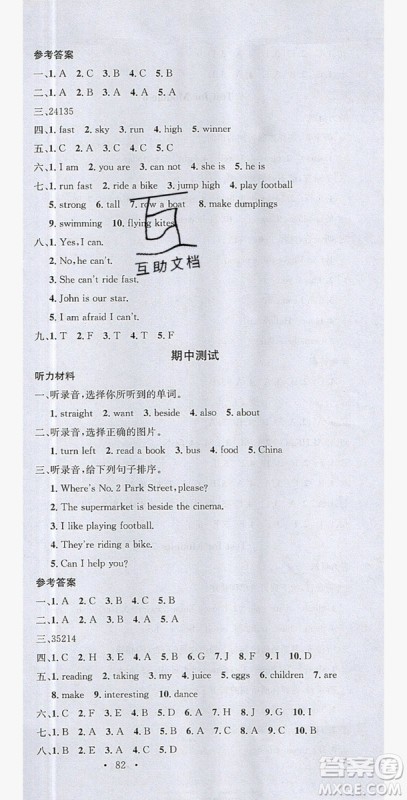 参考答案
一、1. A 2. C 3. A 4. B 5. C
二、1. A 2. B 3. A 4. B 5. A
三、24135
四、1. fast 2. sky 3. run 4. high 5. winner
五、1. C 2. D 3. E 4. A 5. B
六、1. I am 2. you are 3. can not 4. she is 5. he is
七、1. run fast 2. ride a bike 3. jump high 4. play football
5. strong 6. tall 7. row a boat 8. make dumplings
9. swimming 10. flying kites
八、1. Yes, I can.
2. No, he can't.
3. She can't ride fast.
4. John is our star.
5. I am afraid I can't.
九、1. T 2. F 3. F 4. T 5. T
互助文档
期中测试
听力材料
一、听录音,选择你所听到的单词。
1. straight 2. want 3. beside 4. also 5. about
二、听录音,选择正确的图片。
1. turn left 2. read a book 3. bus 4. food 5. China
三、听录音,给下列句子排序。
1. Where's No. 2 Park Street, please?
2. The supermarket is beside the cinema.
3. I like playing football.
4. They're riding a bike.
5. Can I help you?
参考答案
一、1. A 2. C 3. B 4. C 5. B
二、1. A 2. B 3. B 4. A 5. A
三、35214
四、1. C 2. H 3. E 4. A 5. B 6. J 7. G 8. F 9. I 10. D
五、1. reading 2. taking 3. my 4. juice 5. eggs 6. children 7. are
8. make 9. interesting 10. dance
六、1. C 2. C 3. B 4. C 5. B 6. A 7. C 8. C 9. B 10. C
七、1. B 2. C 3. D 4. E 5. A
八、1. B 2. C 3. A 4. C 5. B 6. A 7. A 8. B 9. A 10. D
· 82 ·
答案圈
MXQE.COM